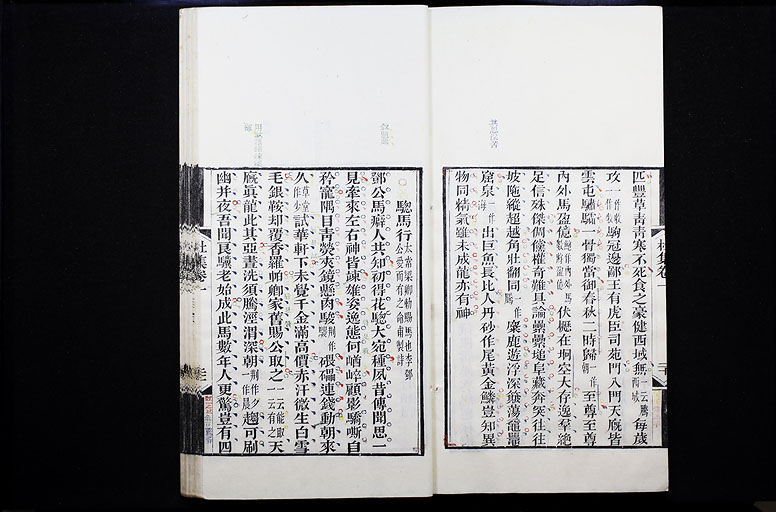 匹豐草青青寒不死食之豪健西域無一云騰西域每歲
攻一作收一作牧駒冠邊鄙王有虎臣司苑門入門天廐皆
雲屯驌驦一骨獨當御春秋二時歸一作朝至尊至尊
內外馬盈億伏櫪在坰空大存逸羣絶
足信殊傑倜儻權奇難具論纍纍塠阜藏奔突往往
坡陁縱超越角壯翻同一作麋鹿遊浮深簸蕩黿鼉
窟泉一作海出巨魚長比人丹砂作尾黃金鱗豈知異
物同精氣雖未成龍亦有神
驄馬行太常梁卿勑賜馬也李鄧公愛而有之命甫製詩
鄧公馬癖人共知初得花驄大宛種夙昔傳聞思一
見牽來左右神皆竦雄姿逸態何崷崒顧影驕嘶自
矜寵隅目青熒夾鏡懸肉駿碨礌連錢動朝來
久草堂作少試華軒下未覺千金滿高價赤汗微生白雪
毛銀鞍却覆香羅帕卿家舊賜公取之一云有之天
廐眞龍此其亞晝洗須騰涇渭深朝荆作夕作晨趨可刷
幽并夜吾聞良驥老始成此馬數年人更驚豈有四
杜集卷一